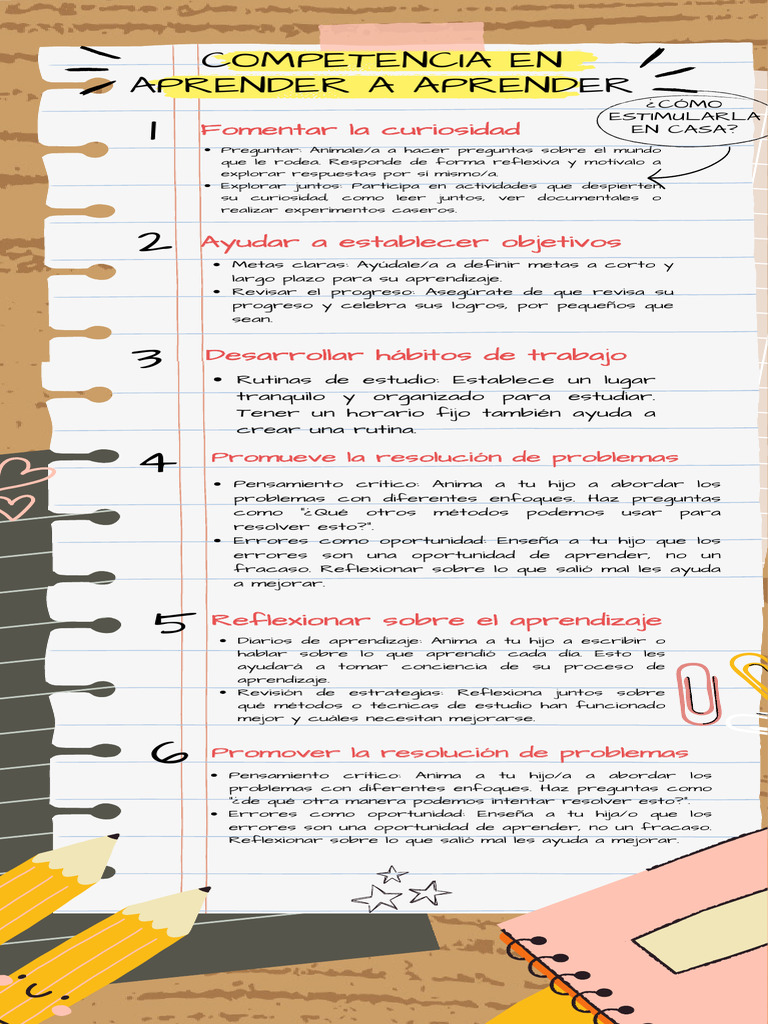 COMPETENCIA EN
APRENDER A APRENDER
¿CÓMO
ESTIMULARLA
EN CASA?
1 Fomentar la curiosidad
• Preguntar: Anímale/a a hacer preguntas sobre el mundo
que le rodea. Responde de forma reflexiva y motívalo a
explorar respuestas por sí mismo/a.
• Explorar juntos: Participa en actividades que despierten
su curiosidad, como leer juntos, ver documentales o
realizar experimentos caseros.
2 Ayudar a establecer objetivos
• Metas claras: Ayúdale/a a definir metas a corto y
largo plazo para su aprendizaje.
• Revisar el progreso: Asegúrate de que revisa su
progreso y celebra sus logros, por pequeños que
sean.
3 Desarrollar hábitos de trabajo
• Rutinas de estudio: Establece un lugar
tranquilo y organizado para estudiar.
Tener un horario fijo también ayuda a
crear una rutina.
4 Promueve la resolución de problemas
• Pensamiento crítico: Anima a tu hijo a abordar los
problemas con diferentes enfoques. Haz preguntas
como "¿Qué otros métodos podemos usar para
resolver esto?".
• Errores como oportunidad: Enseña a tu hijo que los
errores son una oportunidad de aprender, no un
fracaso. Reflexionar sobre lo que salió mal les ayuda
a mejorar.
5 Reflexionar sobre el aprendizaje
• Diarios de aprendizaje: Anima a tu hijo a escribir o
hablar sobre lo que aprendió cada día. Esto les
ayudará a tomar conciencia de su proceso de
aprendizaje.
• Revisión de estrategias: Reflexiona juntos sobre
qué métodos o técnicas de estudio han funcionado
mejor y cuáles necesitan mejorarse.
6 Promover la resolución de problemas
• Pensamiento crítico: Anima a tu hijo/a a abordar los
problemas con diferentes enfoques. Haz preguntas como
"¿de qué otra manera podemos intentar resolver esto?".
• Errores como oportunidad: Enseña a tu hija/o que los
errores son una oportunidad de aprender, no un fracaso.
Reflexionar sobre lo que salió mal les ayuda a mejorar.